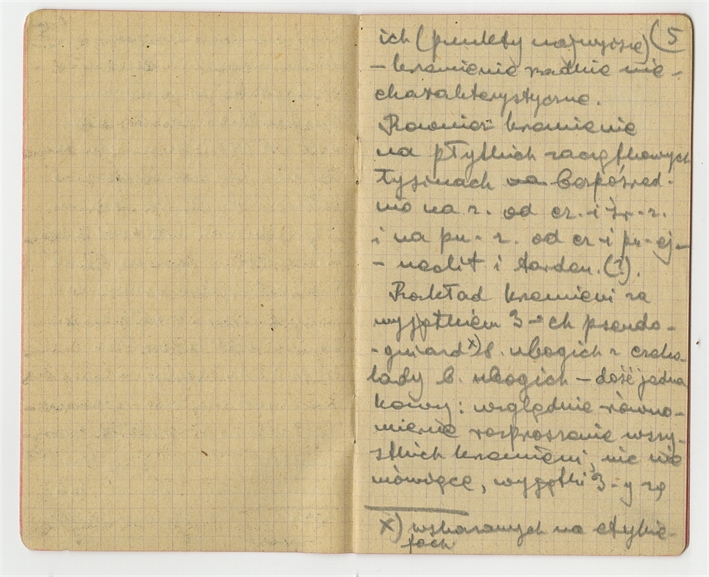 ich (punkty najwyższe) (5
- krzemienie rzadkie nie-
charakterystyczne.
Również krzemienie
na płytkich zaczątkowych
łysinach na bezpośred-
nio na z. od cz.-i śr.-z.
i na pn.-z. od cz-i
- neolit i tarden. (?).
Rozkład krzemieni za
wyjątkiem 3-ch pseudo-
-gniazd x) b. ubogich z czeko-
lady b. ubogich - dość jedna
kowy: względnie równo-
mierne rozproszenie wszy-
stkich krzemieni, nic nie
mówiące, wyjątki 3-y są
x) wskazanych na etykie-
tach